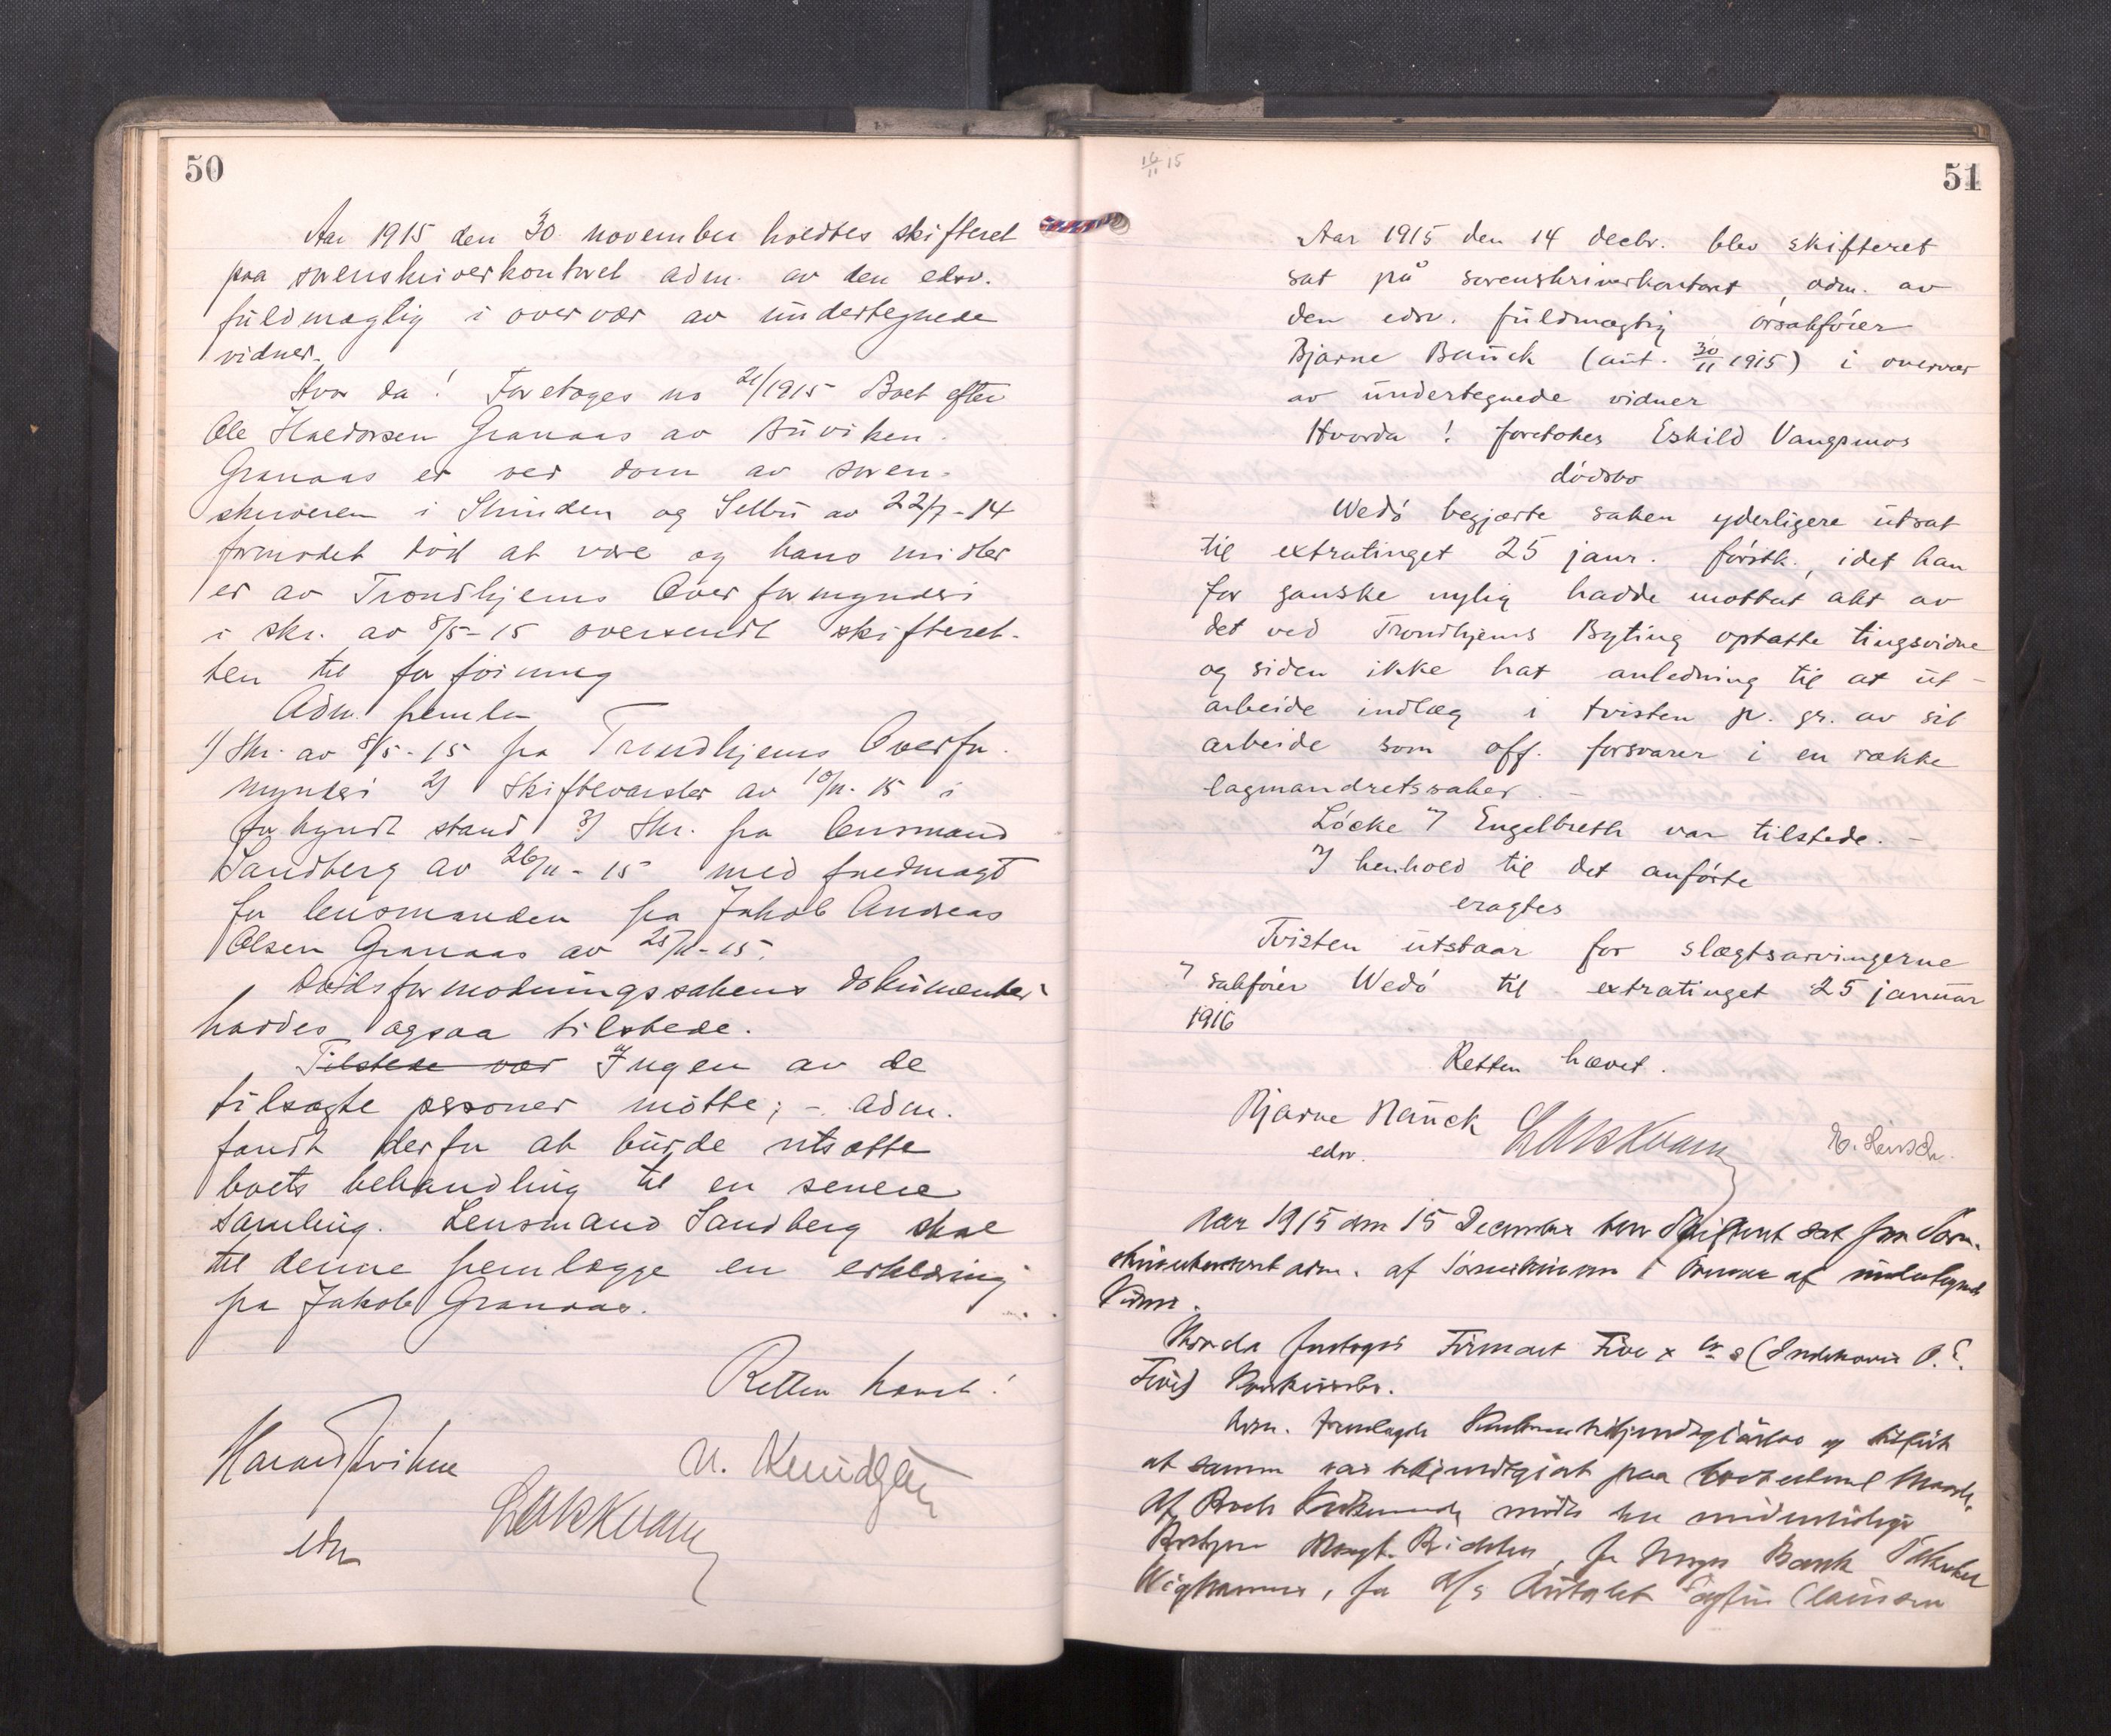 50
Aar 1915 den 30 november holdtes skifteret
paa sorenskriverkontoret adm. av den edsv.
fuldmægtig i overvær av undertegnede
vidner.
Hvor da! Foretoges no 21/1915 Boet efter
Ole Haldorsen Granaas av Buviken.
Granaas er ved dom av soren-
skriveren i Strinden og Selbu av 22/7-14
formodet død at være og hans midler
er av Trondhjems Overformynderi
i skr. av 8/5-15 oversendt skifteret-
ten til forføining
Adm. fremla
1) Skr. av 8/5-15 fra Trondhjems Overfor-
mynderi 2) Skiftevarsler av 10/11-15 i
forkyndt stand 3) Skr. fra lensmand
Sandberg av 26/11-15 med fuldmagt
for lensmanden fra Jakob Andreas
Olsen Granaas av 25/11-15.
Dødsformodningssakens dokumenter
haddes ogsaa tilstede.
Tilstede var Ingen av de
tilsagte personer møtte; - adm.
fandt derfor at burde utsætte
boets behandling til en senere
samling. Lensmand Sandberg skal
til denne fremlægge en erklæring
fra Jakob Granaas.
Retten hævet!
edsv
51
16/11 15
Aar 1915 den 14 decbr. blev skifteret
sat på sorenskriverkontoret, adm. av
den edsv. fuldmægtig, orsakfører
Bjarne Bauck (aut. 30/11 1915) i overvær
av undertegnede vidner
Hvorda! foretokes Eskild Vangsmos
dødsbo
Wedø begjærte saken yderligere utsat
til extratinget 25 janr. førstk., idet han
for ganske nylig hadde mottat akt av
det ved Trondhjems Byting optatte tingsvidne
og siden ikke hat anledning til at ut-
arbeide indlæg i tvisten p. gr. av sit
arbeide som off. forsvarer i en række
lagmandretssaker. -
Løcke / Engelbreth var tilstede. -
I henhold til det anførte
eragtes
Tvisten utstaar for slægtsarvingerne
/ sakfører Wedø til extratinget 25 januar
1916
Retten hævet.
Bjarne Bauck
edsv.
Aar 1915 den 15 December blev Skifteret sat paa Soren-
skriverkontoret adm. af Sorenskriveren i Overvær af undertegnede
Vidner.
Hvorda foretoges Firmaet
Konkursbo.
Adm. fremlagde
at samme var bekjendtgjort paa
Af Boets
Bank